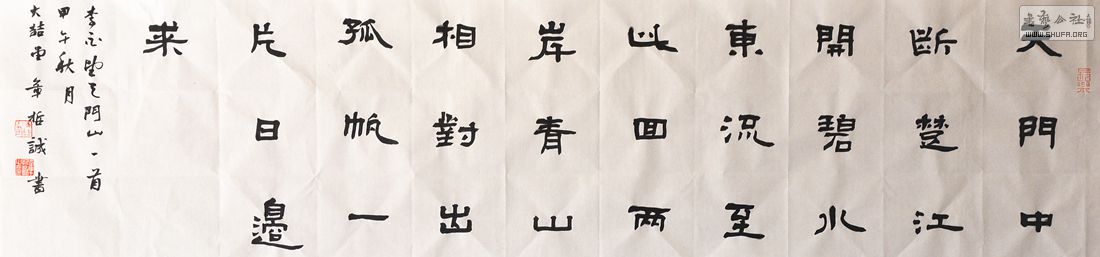 天門中
斷楚江
開碧水
東流至
此回兩
岸青山
相對出
孤帆一
片日邊
來
李白望天門山一首
甲午秋月
大喆堂章哲誠書
書藝公社
WWW.SHUFA.ORG